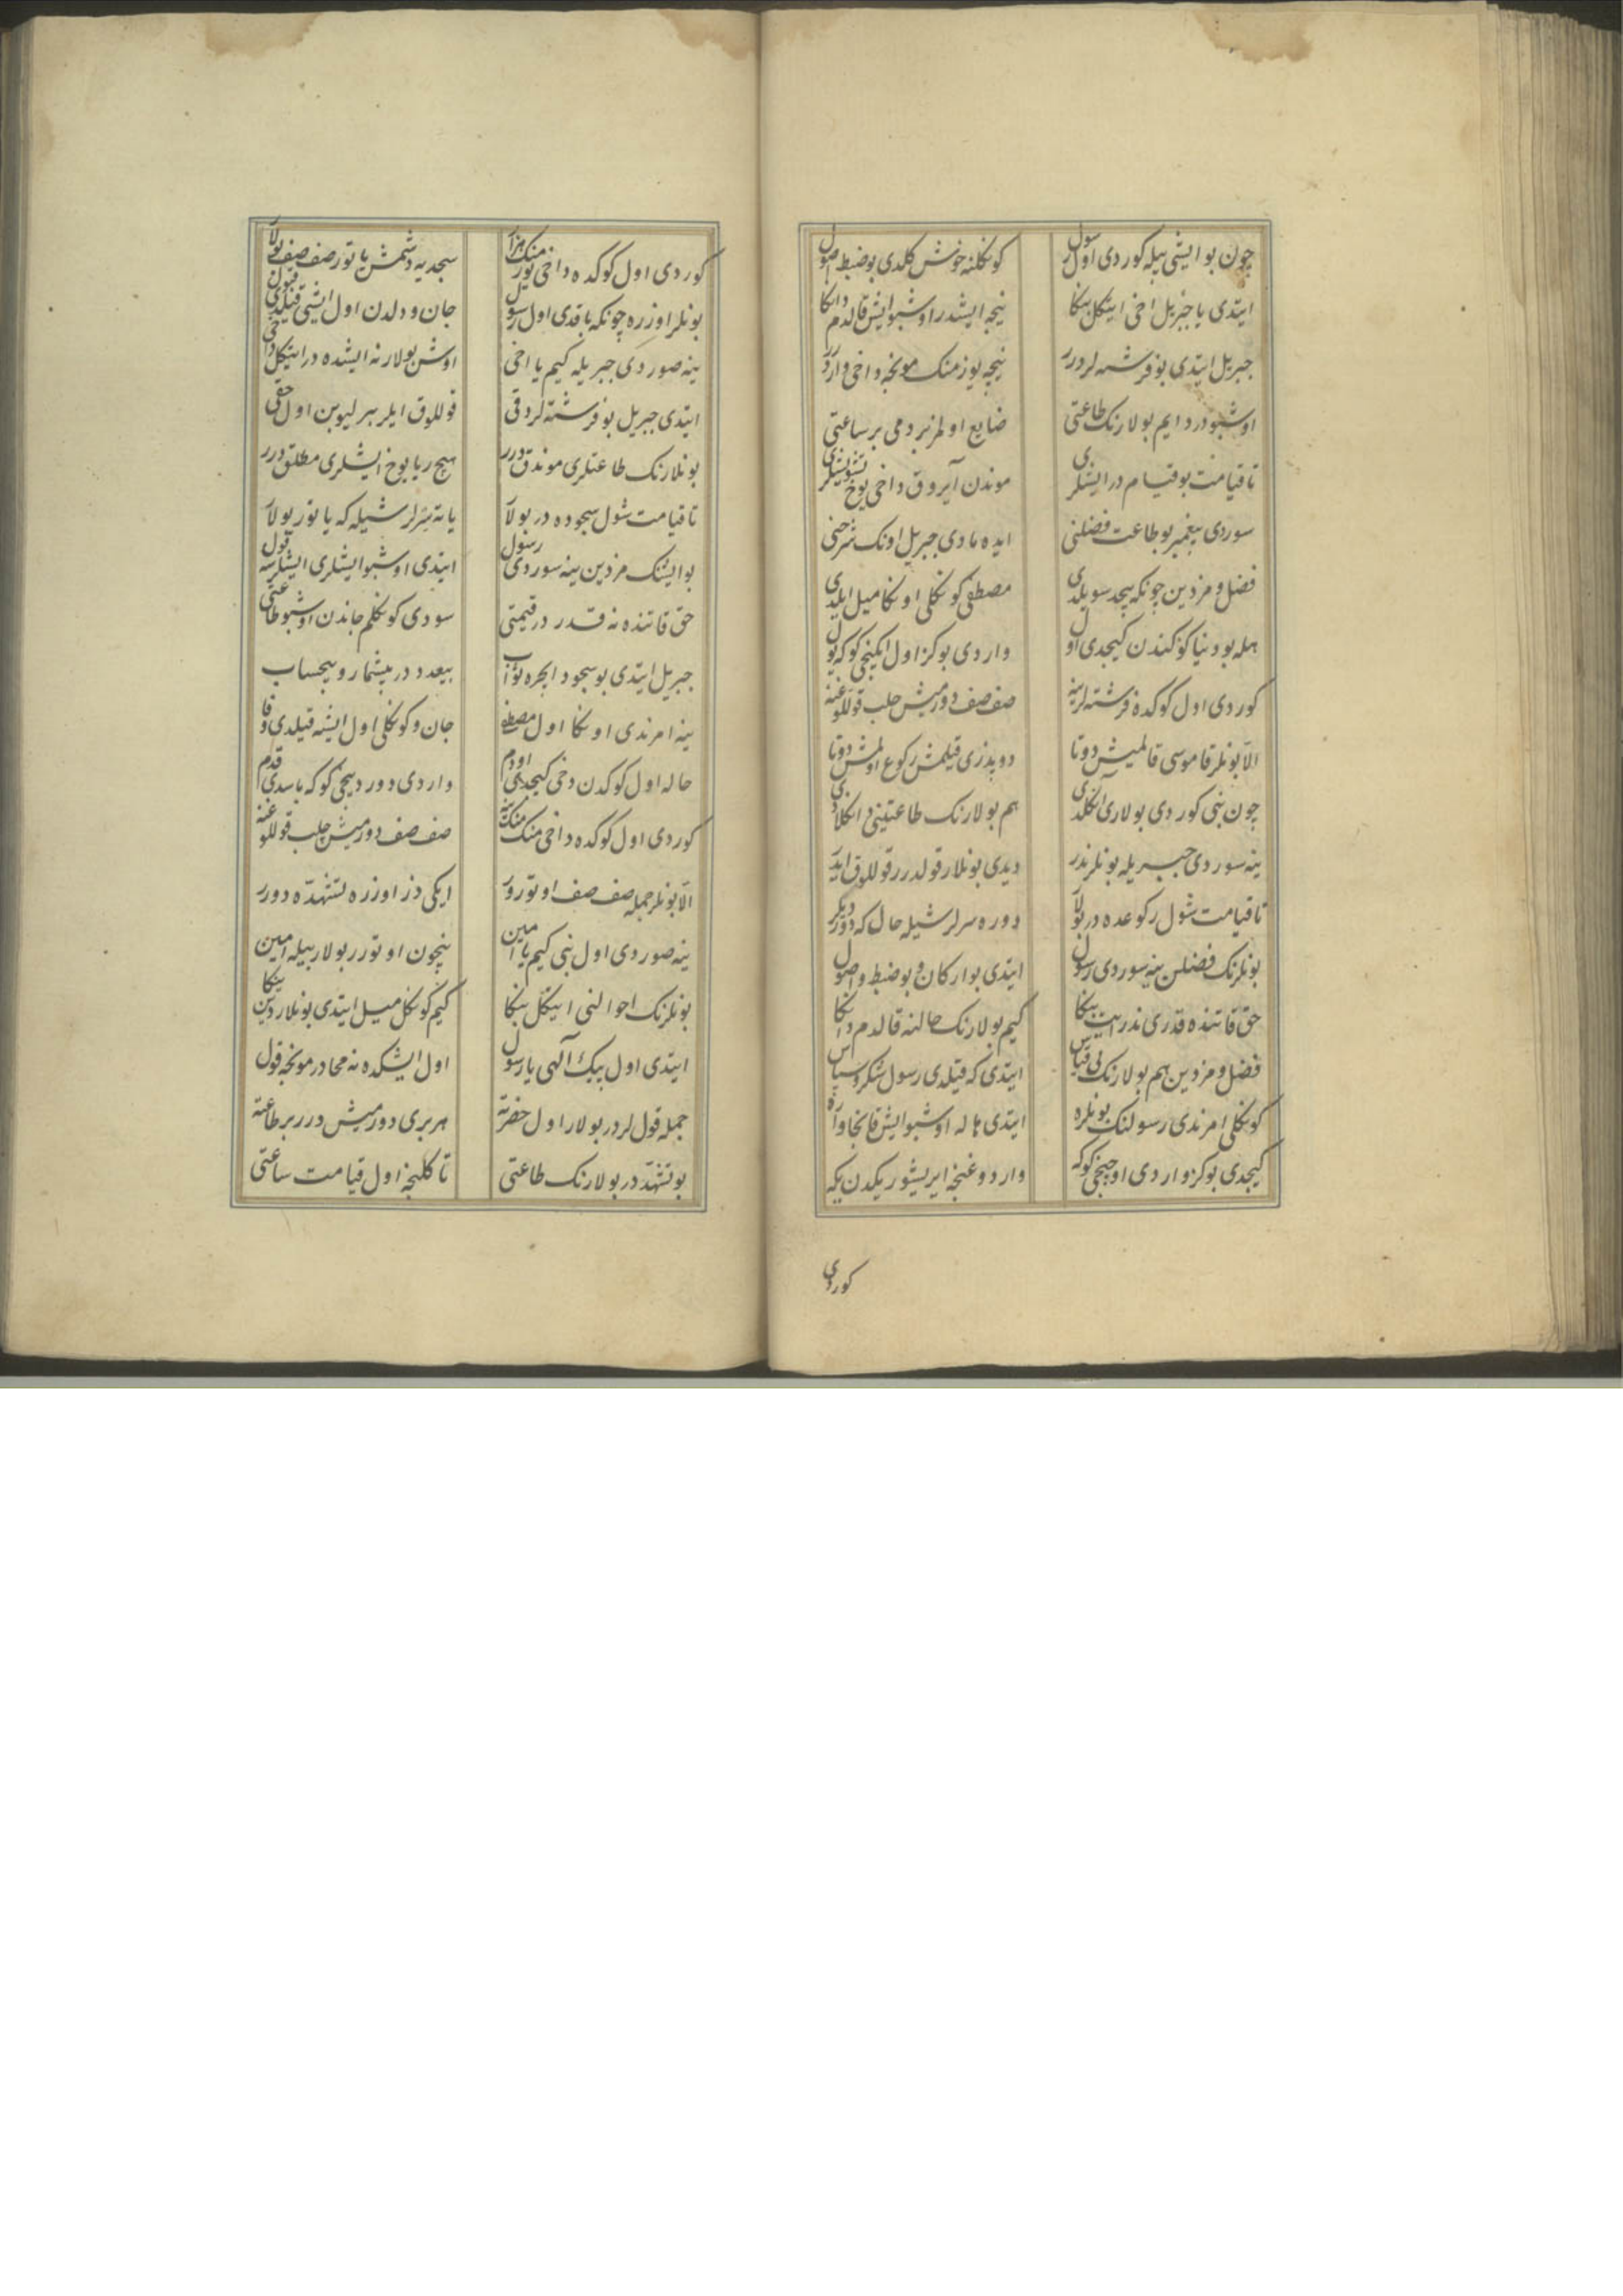 چون بو ایشی بیله کوردی اول رسول
کوکلنه خوش کلدی بو ضبط اصول
ایتدی یا جبریل اخی ایتکل بنکا
نیجه ایشدر اوشبو ایش قالدم دانکا
جبریل ایتدی بو فرشته لردرر
نیجه یوز منک مونجه داخی واردرر
اوشبودر دایم بولارنک طاعتی
ضایع اولمز بر دمی بر ساعتی
تا قیامت بو قیام در ایشلری
موندن آیروق داخی یوخ تشویشلری
سوردی پیغمبر بو طاعت فضلنی
ایده مادی جبریل اونک شرحنی
فضل و مزدین چونکه بیحد سویلدی
مصطفی کوکلی اونکا میل ایلدی
هله بو دنیا کوکندن کیجدی اول
واردی بو کز اول ایکنجی کوکه یول
کوردی اول کوکده فرشته لرینه
صف صف دورمیش جلب قوللوغنه
الا بونلر قاموسی قالمیش دوتا
دوپدزی قیلمش رکوع اولمش دوتا
چون نبی کوردی بولاری انکلدی
هم بولارنک طاعتینی دانکلادی
ینه سوردی جبریله بونلر ندر
دیدی بونلار قولدرر قوللوق ایدر
تا قیامت شول رکوعده در بولار
دوره سرلر شیله حال که
بونلرنک فضلن ینه سوردی رسول
ایتدی بو ارکان و بو ضبط و اصول
حق قاتنده قدری ندر ایت بنکا
کیم بولارنک حالنه قالدم دانکا
فضل و مزدین هم بولارنک بی قیاس
ایتدی که قیلدی رسول شکر و سپاس
کوکلی امرندی رسولنک بونلره
ایتدی هاله اوشبو ایش قانجا واره
کیجدی بو کز واردی اوجنجی کوکه
واردوغنجه ایریشور یکدن یکه
کوردی
کوردی اول کوکده داخی منک هزار
سجدیه دشمش یاتور صف صف بولار
بونلر اوزره چونکه باقدی اول رسول
جان و دلدن اول ایشی قیلدی قبول
ینه صوردی جبریله کیم یا اخی
اوش بولار نه ایشده در ایتکل داخی
ایتدی جبریل بو فرشته لر دقی
قوللوق ایلر بیرلیوبن اول حقی
بونلارنک طاعتلری موندق درر
هیچ ریا یوخ ایشلری مطلق درر
تا قیامت شول سجوده در بولار
یاته سرلر شیله که یاتور بولار
بو ایشنک مزدین ینه سوردی رسول
ایتدی اوشبو ایشلری ایشلرسه قول
حق قاتنده نه قدر در قیمتی
سودی کوکلم جاندن اوشبو طاعتی
جبریل ایتدی بو سجود ایجره ثواب
بیعدد در بیشمار و بیحساب
ینه امرندی اونکا اول مصطفی
جان و کوکلی اول ایشه قیلدی وفا
حاله اول کوکدن دخی کیجدی اودم
واردی دوردیجی کوکه باسدی قدم
کوردی اول کوکده داخی منک منک ینه
صف صف دورمیش جلب قوللوغنه
الا بونلر جمله صف صف اوتورور
ایکی دز اوزره تشهدّه دورر
ینه صوردی اول نبی کیم یا امین
نیچون اوتورر بولار بیله امین
بونلرنک احوالنی ایتکل بنکا
کیم کوکل میل ایتدی بونلاردین ینکا
ایتدی اول پیک آلهی یا رسول
اول ایشکده نه محادر مونجه قول
جمله قول لردر بولار اول حضرته
هر بری دورمیش درر بر طاعته
بو تشهدّ در بولارنک طاعتی
تا کلنجه اول قیامت ساعتی